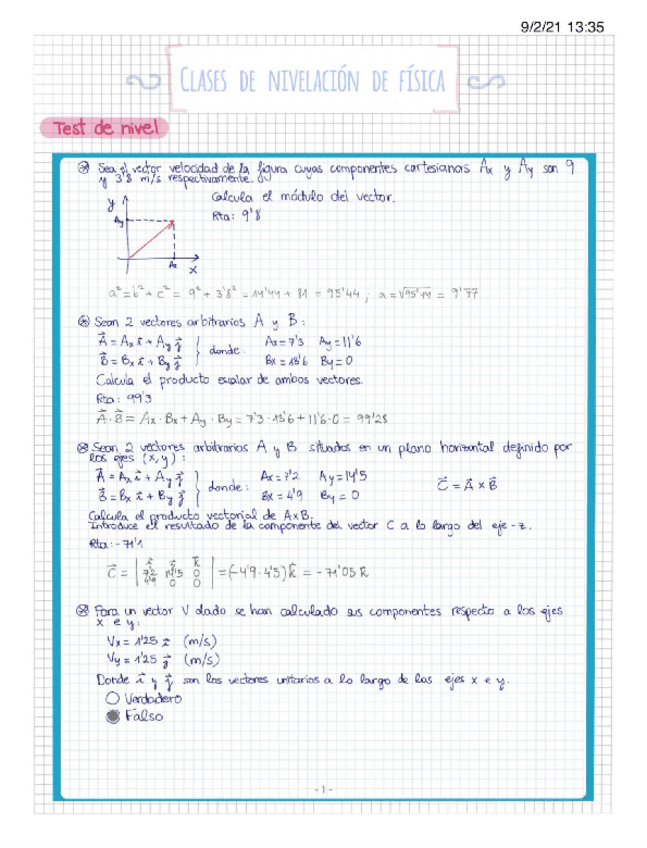 9/2/21 13:35
CLASES DE NIVELACIÓN DE FÍSICA
Test de nivel
Sea el vector velocidad de la figura cuyas componentes cartesianas Ax y Ay son 9
y 3'8 m/s respectivamente.
Calcula el módulo del vector.
Rta: 9'8
y
Ay
Ax
x
a² = b² + c² = 9² + 3'8² = 14'44 + 81 = 95'44 ; a = √95'44 = 9'77
Sean 2 vectores arbitrarios A y B:
A⃗ = Ax i⃗ + Ay j⃗
B⃗ = Bx i⃗ + By j⃗
donde:
Ax = 7'3 Ay = 11'6
Bx = 13'6 By = 0
Calcula el producto escalar de ambos vectores.
Rta: 99'3
A⃗·B⃗ = Ax · Bx + Ay · By = 7'3 · 13'6 + 11'6 · 0 = 99'28
Sean 2 vectores arbitrarios A y B situados en un plano horizontal definido por
los ejes (x,y):
A⃗ = Ax i⃗ + Ay j⃗
B⃗ = Bx i⃗ + By j⃗
donde:
Ax = 7'2 Ay = 14'5
Bx = 4'9 By = 0
C⃗ = A⃗ × B⃗
Calcula el producto vectorial de AxB.
Introduce el resultado de la componente del vector C a lo largo del eje - z.
Rta: - 71'1
C⃗ = | i⃗ j⃗ k⃗
7'2 14'5 0
4'9 0 0 | = (-4'9 · 4'5) k⃗ = - 71'05 k
Para un vector V dado se han calculado sus componentes respecto a los ejes
x e y:
Vx = 1'25 i⃗ (m/s)
Vy = 1'25 j⃗ (m/s)
Donde i⃗ y j⃗ son los vectores unitarios a lo largo de los ejes x e y.
Verdadero
Falso
- 1 -